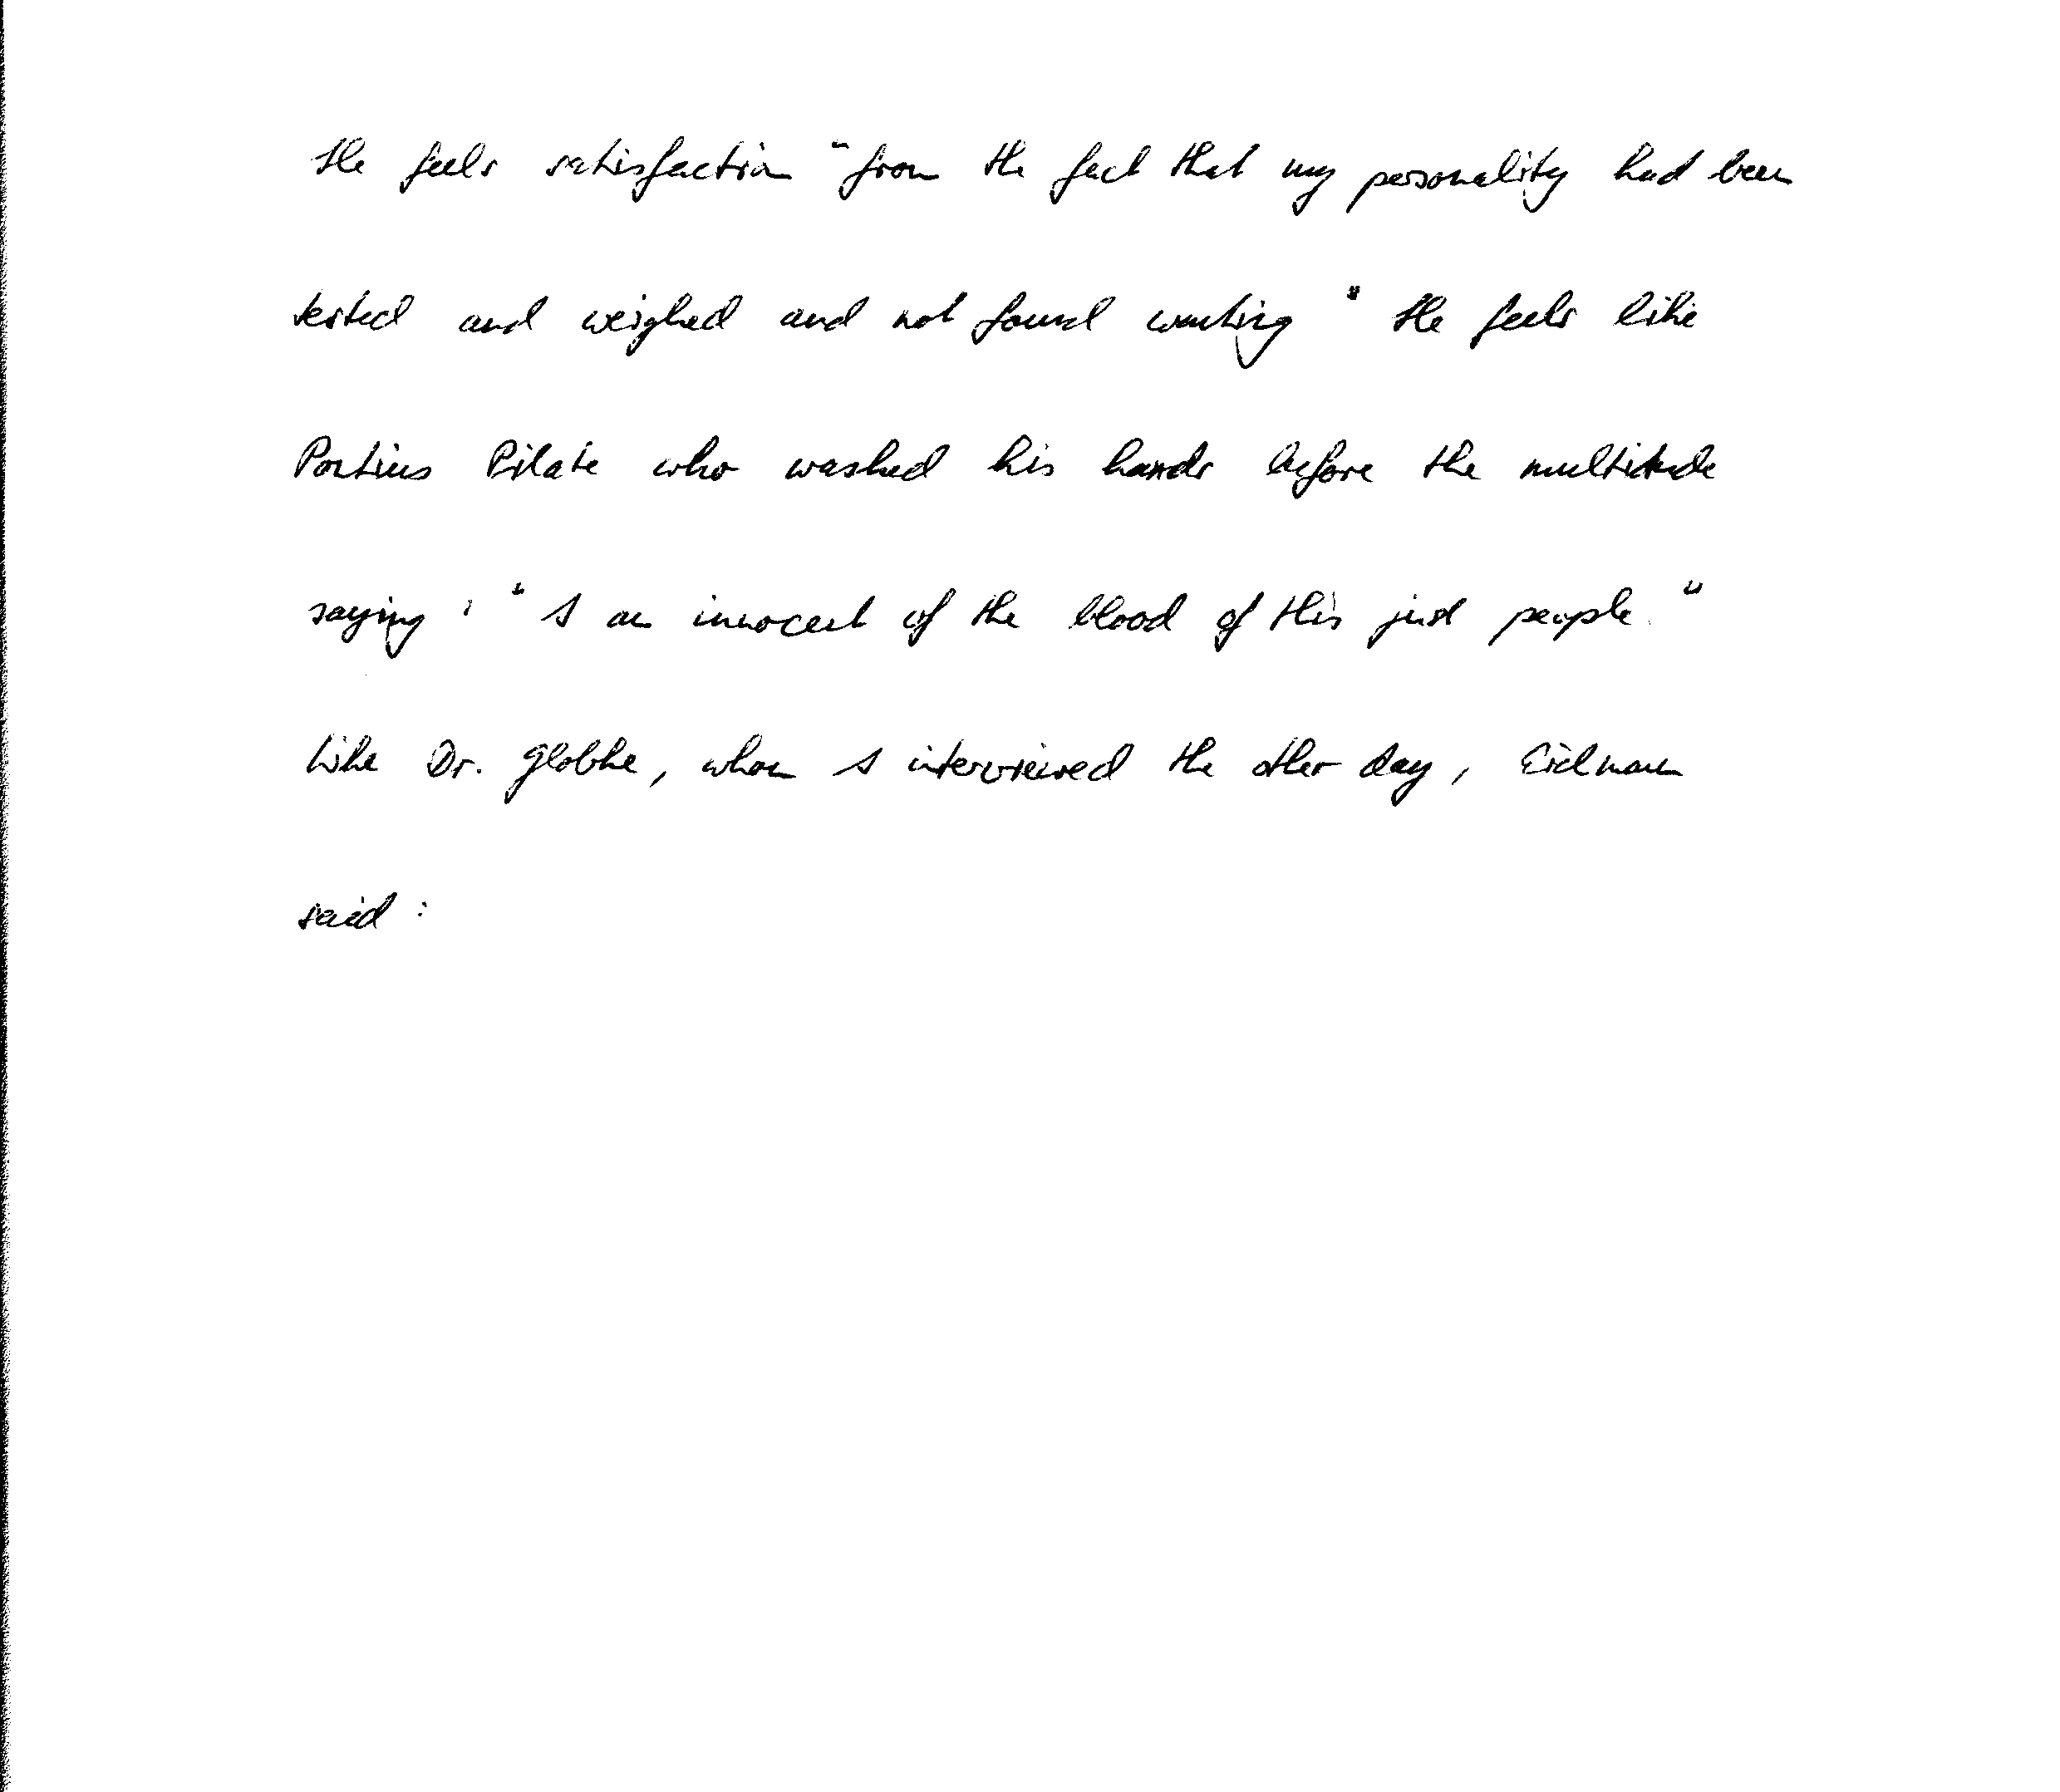 He feels satisfaction "from the fact that my personality had been
tested and weighed and not found wanting" He feels like
Pontius Pilate who washed his hands before the multitude
saying: "I am innocent of the blood of this just people."
Like Dr. Globke, whom I interviewed the other day, Eichmann
said: